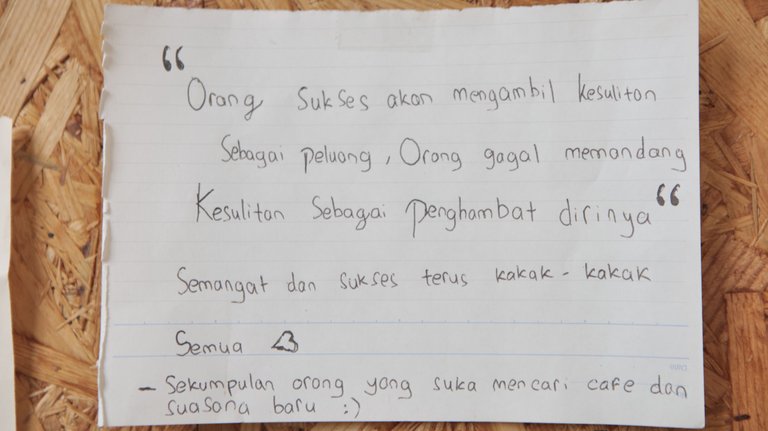 “
Orang Sukses akan mengambil kesulitan
Sebagai peluang, Orang gagal memandang
Kesulitan Sebagai Penghambat dirinya“
Semangat dan sukses terus kakak - kakak
Semua ♡
- Sekumpulan orang yang suka mencari cafe dan
suasana baru :)